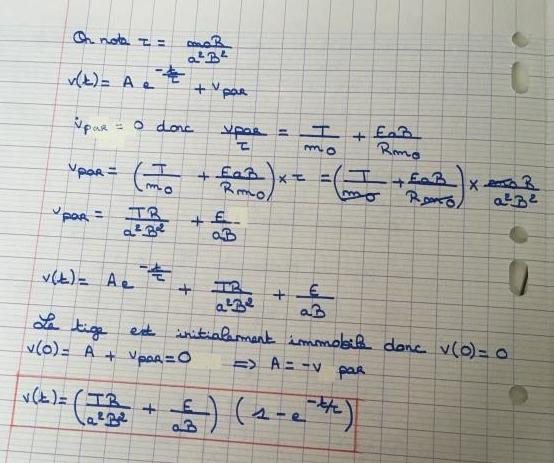 On note τ = m₀R / a²B²
v(t) = A e^(-t/τ) + v par
v̇ par = 0 donc v par / τ = T / m₀ + EaB / Rm₀
v par = (T / m₀ + EaB / Rm₀) × τ = (T / m₀ + EaB / Rm₀) × m₀R / a²B²
v par = TR / a²B² + E / aB
v(t) = A e^(-t/τ) + TR / a²B² + E / aB
La tige est initialement immobile donc v(0) = 0
v(0) = A + v par = 0 ⇒ A = -v par
v(t) = (TR / a²B² + E / aB) (1 - e^(-t/τ))